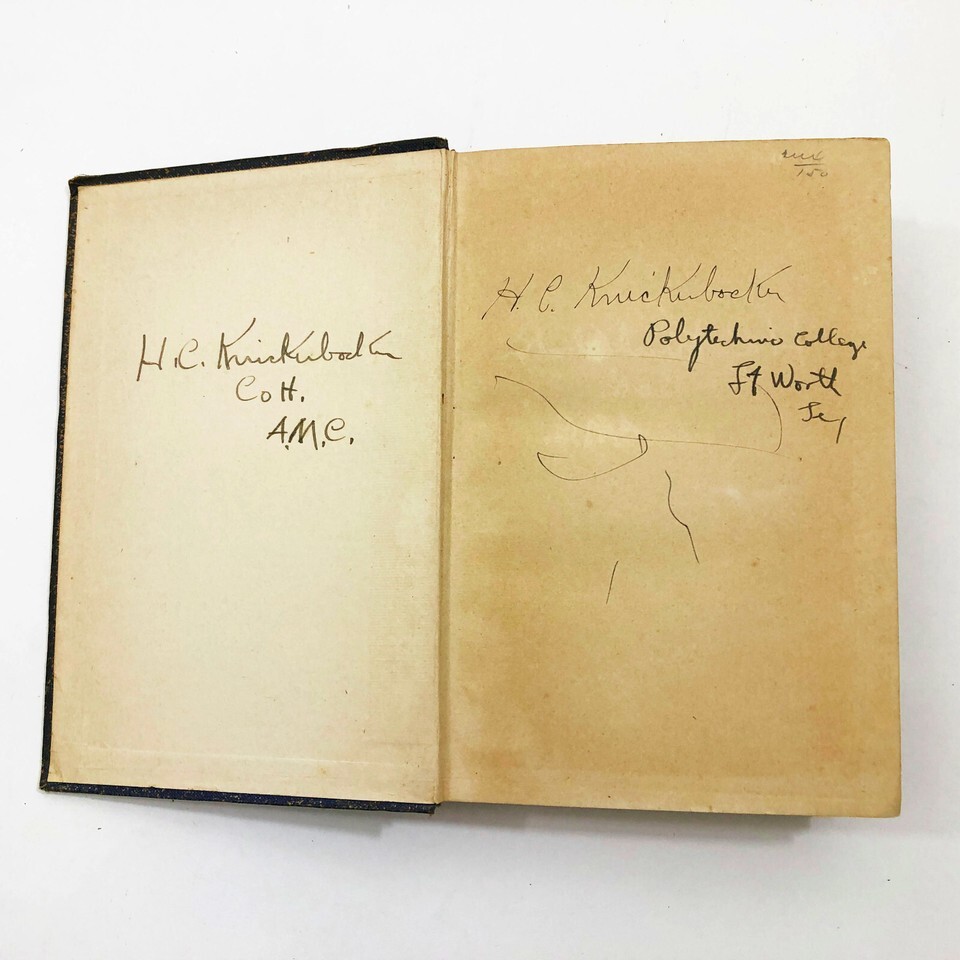 H. C. Knickerbocker
Co H.
A.M.C.
150
H C. Knickerbocker
Polytechnic College
Ft Worth
Tex